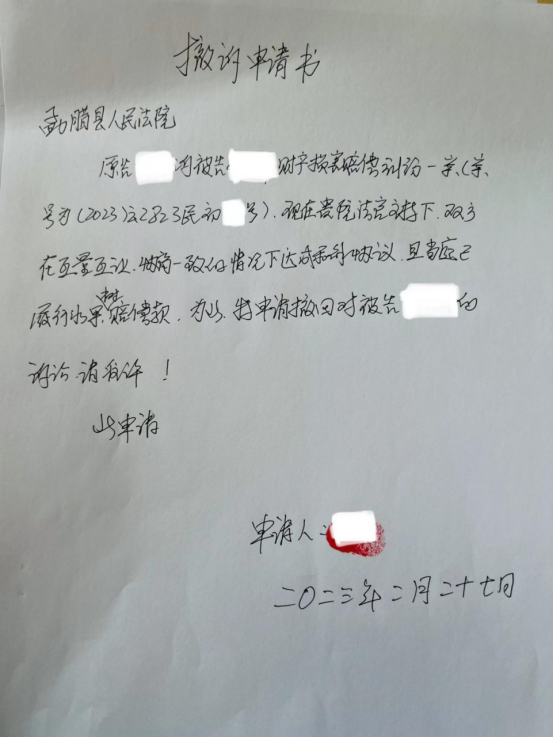 撤诉申请书
勐腊县人民法院
原告 诉被告 财产损害赔偿纠纷一案(案
号为(2023)云2823民初 号),现在贵院法官主持下,双方
在互量互让、协商一致的情况下达成和解协议,且当庭已
履行 赔偿款,为此,特申请撤回对被告 的
诉讼,请予准许!
此申请
申请人:
二〇二三年二月二十七日